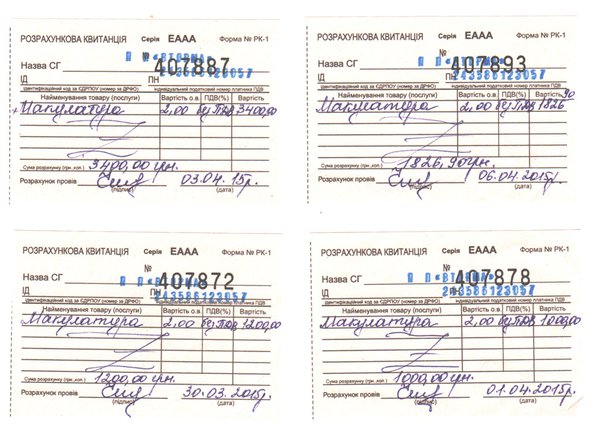 РОЗРАХУНКОВА КВИТАНЦІЯ Серія ЕААА Форма № РК-1
№ 407887
П П «ВТОРМА»
Назва СГ
243586123057
ІД ПН
ідентифікаційний код за ЄДРПОУ (номер за ДРФО) індивідуальний податковий номер платника ПДВ
Найменування товару (послуги) Вартість о.в. ПДВ(%) Вартість
Макулатура 2,00 без ПДВ 3400,00
Сума розрахунку (грн.,коп.) 3400,00 грн.
Розрахунок провів 03.04.15р.
(підпис) (дата)
РОЗРАХУНКОВА КВИТАНЦІЯ Серія ЕААА Форма № РК-1
№ 407893
П П «ВТОРМА»
Назва СГ
243586123057
ІД ПН
ідентифікаційний код за ЄДРПОУ (номер за ДРФО) індивідуальний податковий номер платника ПДВ
Найменування товару (послуги) Вартість о.в. ПДВ(%) Вартість
Макулатура 2,00 без ПДВ 1826,90
Сума розрахунку (грн.,коп.) 1826,90 грн.
Розрахунок провів 06.04.2015р.
(підпис) (дата)
РОЗРАХУНКОВА КВИТАНЦІЯ Серія ЕААА Форма № РК-1
№ 407872
П П «ВТОРМА»
Назва СГ
243586123057
ІД ПН
ідентифікаційний код за ЄДРПОУ (номер за ДРФО) індивідуальний податковий номер платника ПДВ
Найменування товару (послуги) Вартість о.в. ПДВ(%) Вартість
Макулатура 2,00 без ПДВ 1200,00
Сума розрахунку (грн.,коп.) 1200,00 грн.
Розрахунок провів 30.03.2015р.
(підпис) (дата)
РОЗРАХУНКОВА КВИТАНЦІЯ Серія ЕААА Форма № РК-1
№ 407878
П П «ВТОРМА»
Назва СГ
243586123057
ІД ПН
ідентифікаційний код за ЄДРПОУ (номер за ДРФО) індивідуальний податковий номер платника ПДВ
Найменування товару (послуги) Вартість о.в. ПДВ(%) Вартість
Макулатура 2,00 без ПДВ 1000,00
Сума розрахунку (грн.,коп.) 1000,00 грн.
Розрахунок провів 01.04.2015р.
(підпис) (дата)